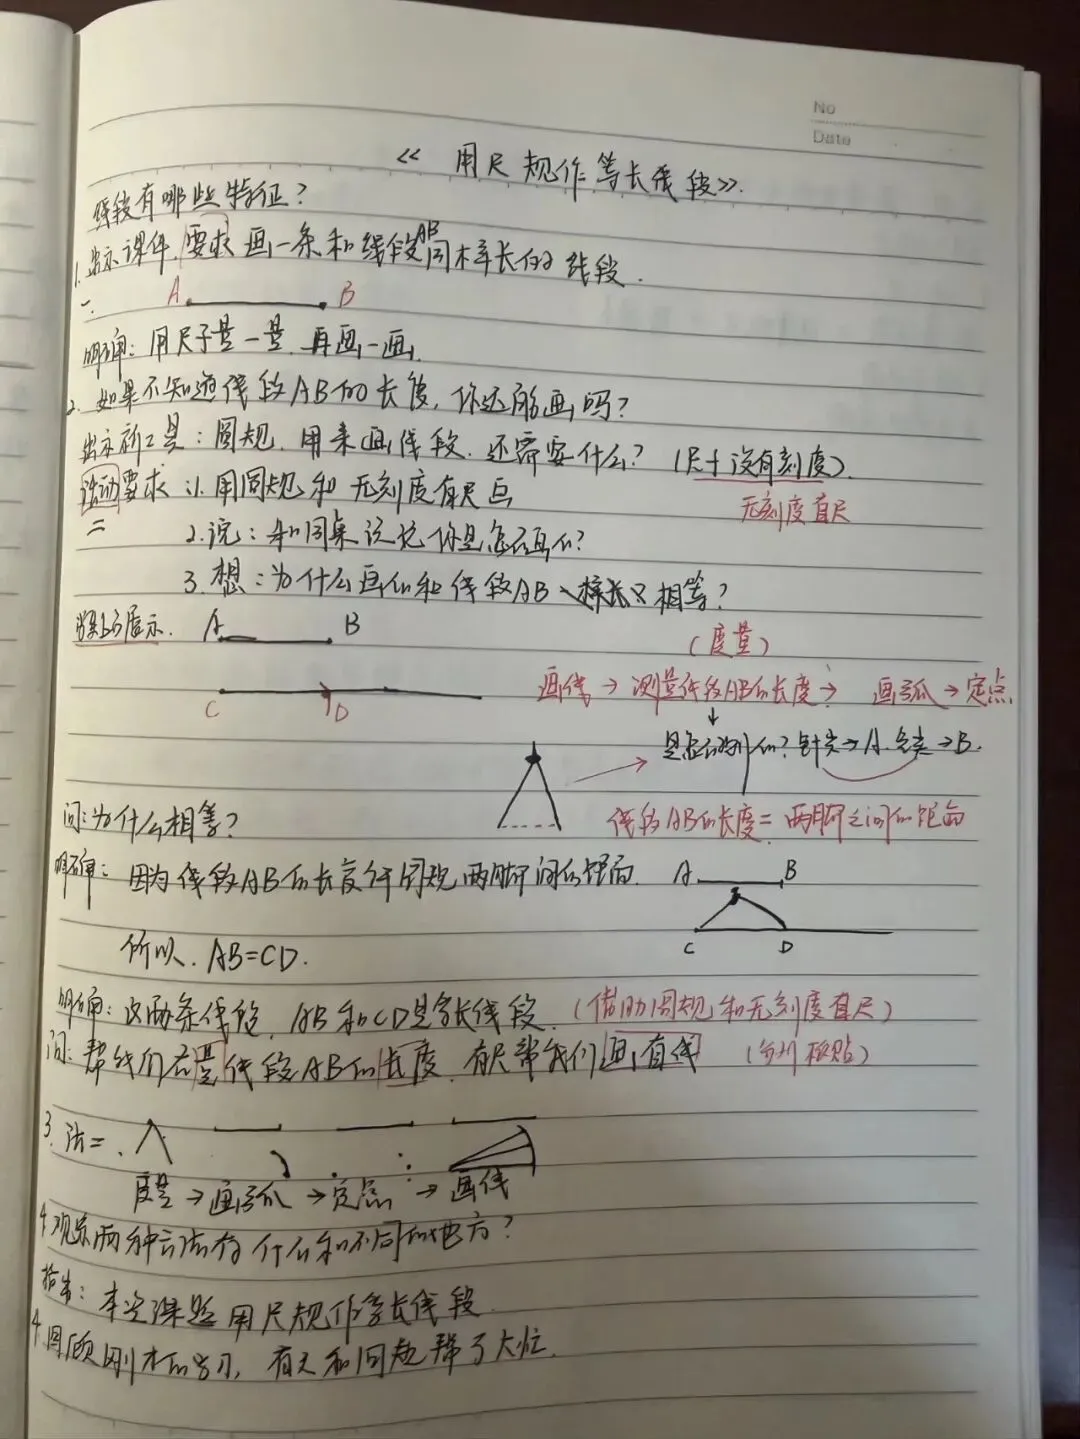 No
Date
《用尺规作等长线段》.
线段有哪些特征?
1.出示课件,要求画一条和线段AB同样长的线段.
一.
A B
明确:用尺子量一量.再画一画.
2.如果不知道线段AB的长度,你还能画吗?
出示新工具:圆规.用来画线段.还需要什么?(尺子没有刻度).
活动要求:1.用圆规和无刻度直尺画
无刻度直尺
二
2.说:和同桌说说你是怎么画的?
3.想:为什么画的和线段AB 相等?
展示. A B
(度量)
画线→测量线段AB的长度→画弧→定点
C D
是怎么测量的?针尖→A.笔尖→B.
问:为什么相等?
线段AB的长度=两脚之间的距离
明确:因为线段AB的长度等于圆规两脚间的距离.
A B
所以.AB=CD.
C D
明确:这两条线段.AB和CD是等长线段.(借助圆规和无刻度直尺)
问:帮我们在量线段AB的长度.直尺帮我们画直线(板贴)
3.法二.
度量→画弧→定点→画线
4.观察两种方法有什么和不同的地方?
指出:本次课题用尺规作等长线段.
4.回顾刚才的学习,直尺和圆规帮了大忙.